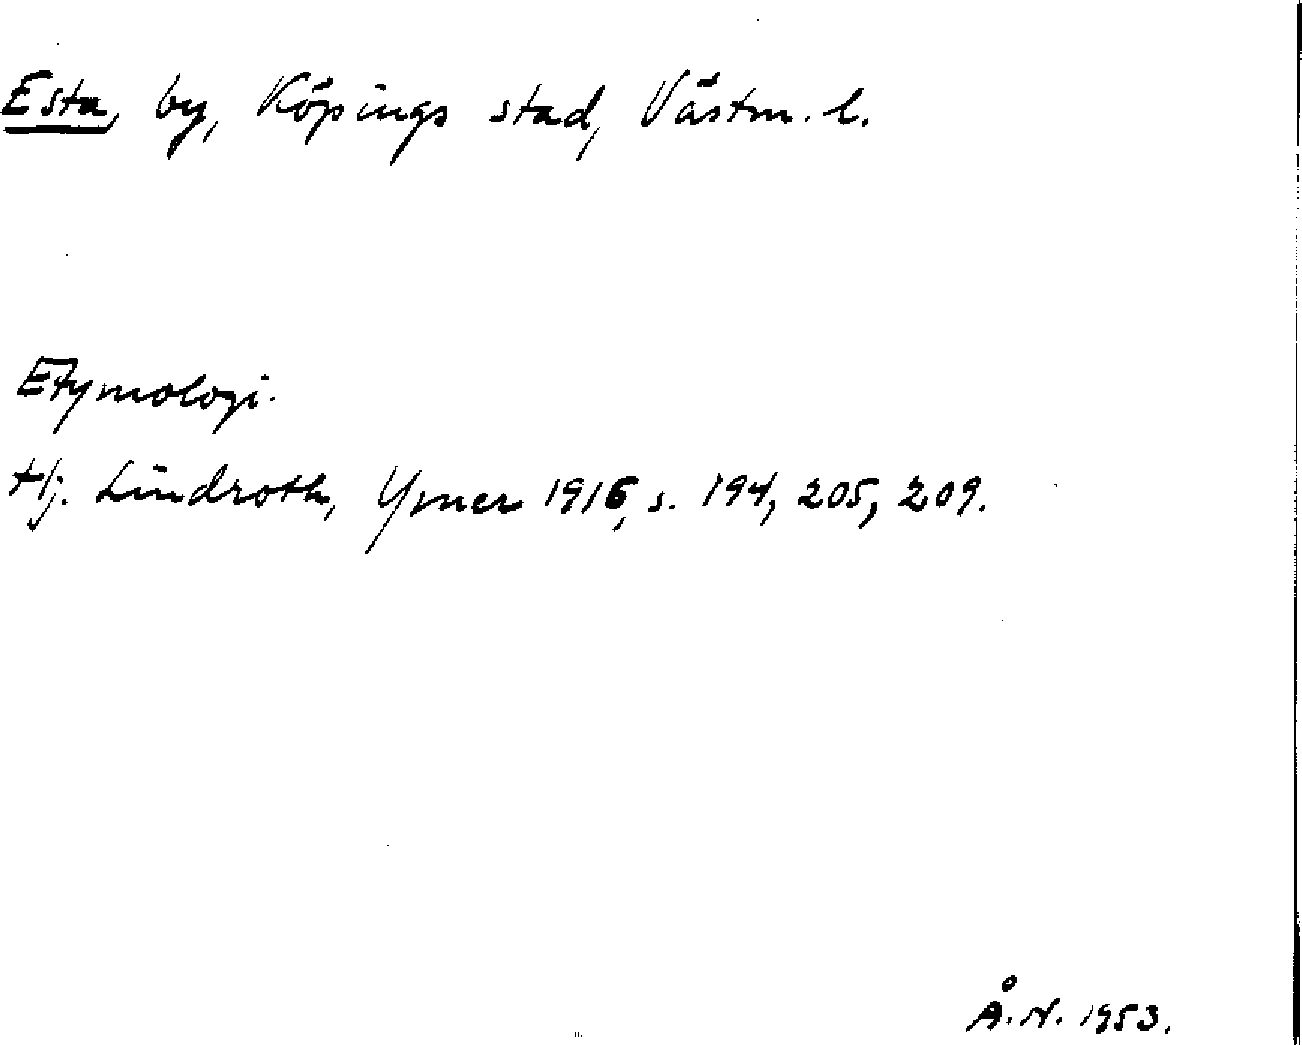 Esta, by, Köpings stad, Västm. l.
Etymologi.
Hj. Lindroth, Ymer 1916, s. 194, 205, 209.
Å. N. 1953.